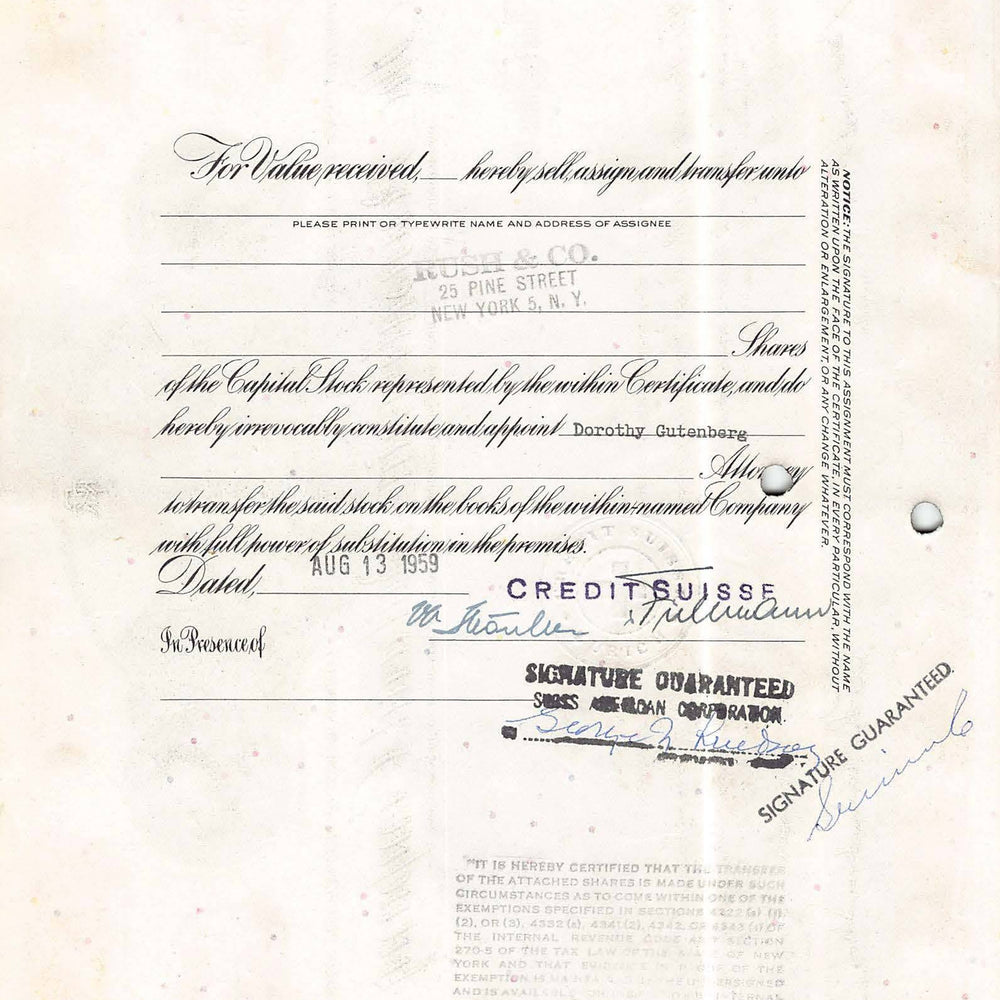 For Value received, hereby sell, assign and transfer unto
PLEASE PRINT OR TYPEWRITE NAME AND ADDRESS OF ASSIGNEE
RUSH & CO.
25 PINE STREET
NEW YORK 5, N. Y.
Shares
of the Capital Stock represented by the within Certificate, and do
hereby irrevocably constitute and appoint Dorothy Gutenberg
Attorney
to transfer the said stock on the books of the within-named Company
with full power of substitution in the premises.
Dated, AUG 13 1959
CREDIT SUISSE
In Presence of
SIGNATURE GUARANTEED
SWISS AMERICAN CORPORATION
NOTICE: THE SIGNATURE TO THIS ASSIGNMENT MUST CORRESPOND WITH THE NAME
AS WRITTEN UPON THE FACE OF THE CERTIFICATE, IN EVERY PARTICULAR, WITHOUT
ALTERATION OR ENLARGEMENT, OR ANY CHANGE WHATEVER.
SIGNATURE GUARANTEED.
"IT IS HEREBY CERTIFIED THAT THE TRANSFER
OF THE ATTACHED SHARES IS MADE UNDER SUCH
CIRCUMSTANCES AS TO COME WITHIN ONE OF THE
EXEMPTIONS SPECIFIED IN SECTIONS 4322 (a) (1),
(2), OR (3), 4332 (a), 4341 (2), 4342, OR 4343 (1) OF
THE INTERNAL REVENUE CODE SECTION
270-5 OF THE TAX LAW OF THE OF NEW
YORK AND THAT OF THE
EXEMPTION IS
AND IS